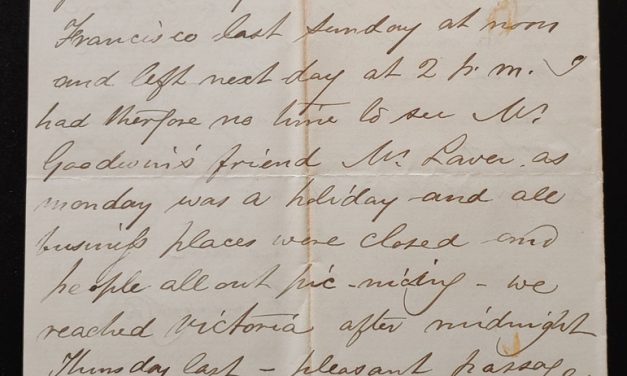 Francisco last sunday at noon
and left next day at 2 p.m. I
had therfore no time to see Mr
Goodwin's friend Mr Laver. as
monday was a holiday and all
business places were closed and
people all out pic-nicing - we
reached Victoria after midnight
Thursday last - pleasant passage